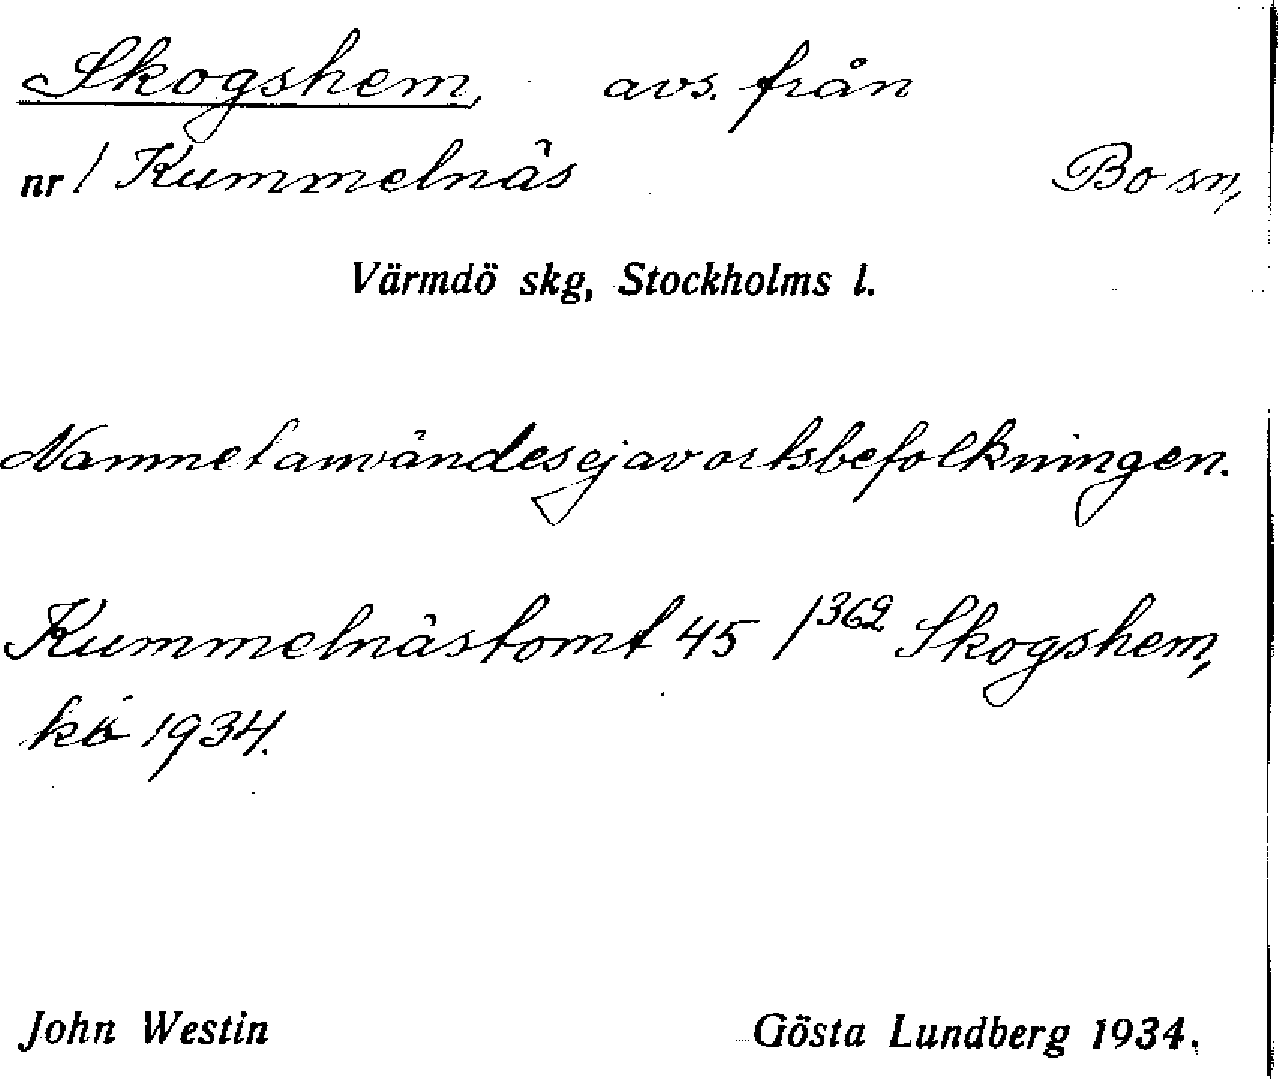 Skogshem, avs. från
nr 1 Kummelnäs Bo sn,
Värmdö skg, Stockholms l.
Namnet användes ej av ortsbefolkningen.
Kummelnästomt 45 1362 Skogshem,
kb 1934.
John Westin Gösta Lundberg 1934.